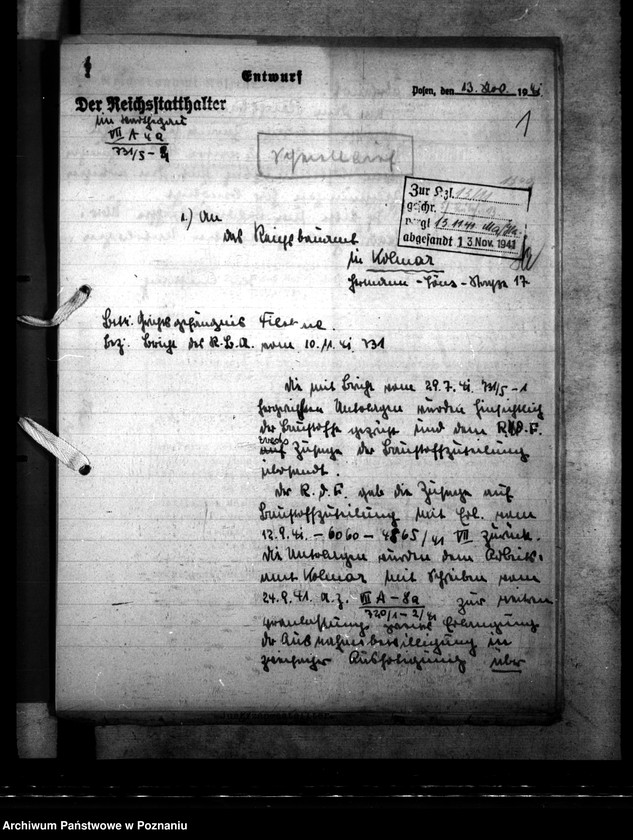 Entwurf
Posen, den 13. Nov. 1941.
Der Reichsstatthalter
im Warthegau
VII A 4a
731/5 -
1
Zur Kzl. 13/11
geschr.
vergl 13.11.41
abgesandt 13. Nov. 1941
1.) An
das Reichsbauamt
in Kolmar
Hermann-Löns-Strasse 17
Betr. Gerichtsgefängnis
Bez. Bericht des R.B.A. vom 10.11.41 731
Die mit Bericht vom 29.7.41. 731/5-1
Unterlagen wurden hinsichtlich
der Baustoffe geprüft und dem
auf Zusage der Baustoffzuteilung
übersandt.
Der gab die Zusage auf
Baustoffzuteilung mit Erl. vom
12.9.41. - 6060 - 4865/41 VII zurück.
Die Unterlagen wurden dem Arbeits-
amt Kolmar mit Schreiben vom
24.9.41. A.Z. VII A - 8a zur weiteren
720/1-2/41
Veranlassung Erlangung
der Ausnahmebewilligung in
Ausfertigung über
Archiwum Państwowe w Poznaniu